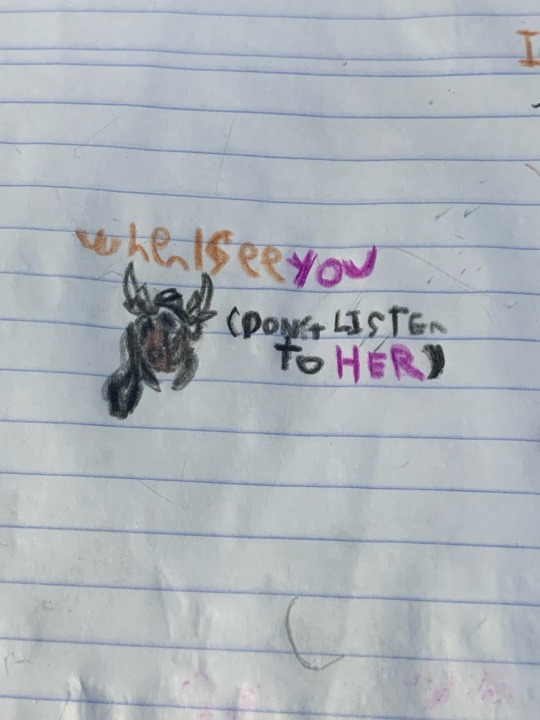 I
when I see you
(DONG LISTEN
to HER)